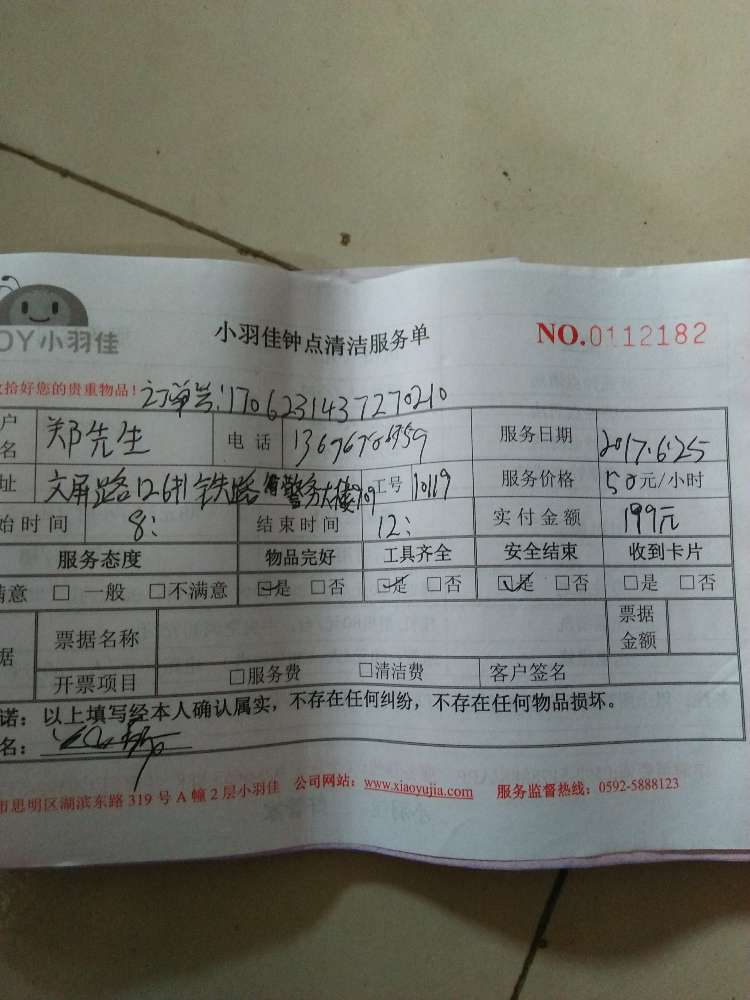 OY小羽佳
小羽佳钟点清洁服务单
NO.0112182
拾好您的贵重物品！订单号:1706231437270210
户名 郑先生 电话 服务日期 2017.6.25
址 文屏路 铁路 警务大楼709 工号 10119 服务价格 50元/小时
始时间 8: 结束时间 12: 实付金额 199元
服务态度 物品完好 工具齐全 安全结束 收到卡片
满意 □ 一般 □不满意 ☑是 □否 ☑是 □否 ☑是 □否 □是 □否
据 票据名称 票据金额
开票项目 □服务费 □清洁费 客户签名
诺：以上填写经本人确认属实，不存在任何纠纷，不存在任何物品损坏。
名：
市思明区湖滨东路319号A幢2层小羽佳 公司网站：www.xiaoyujia.com 服务监督热线：0592-5888123